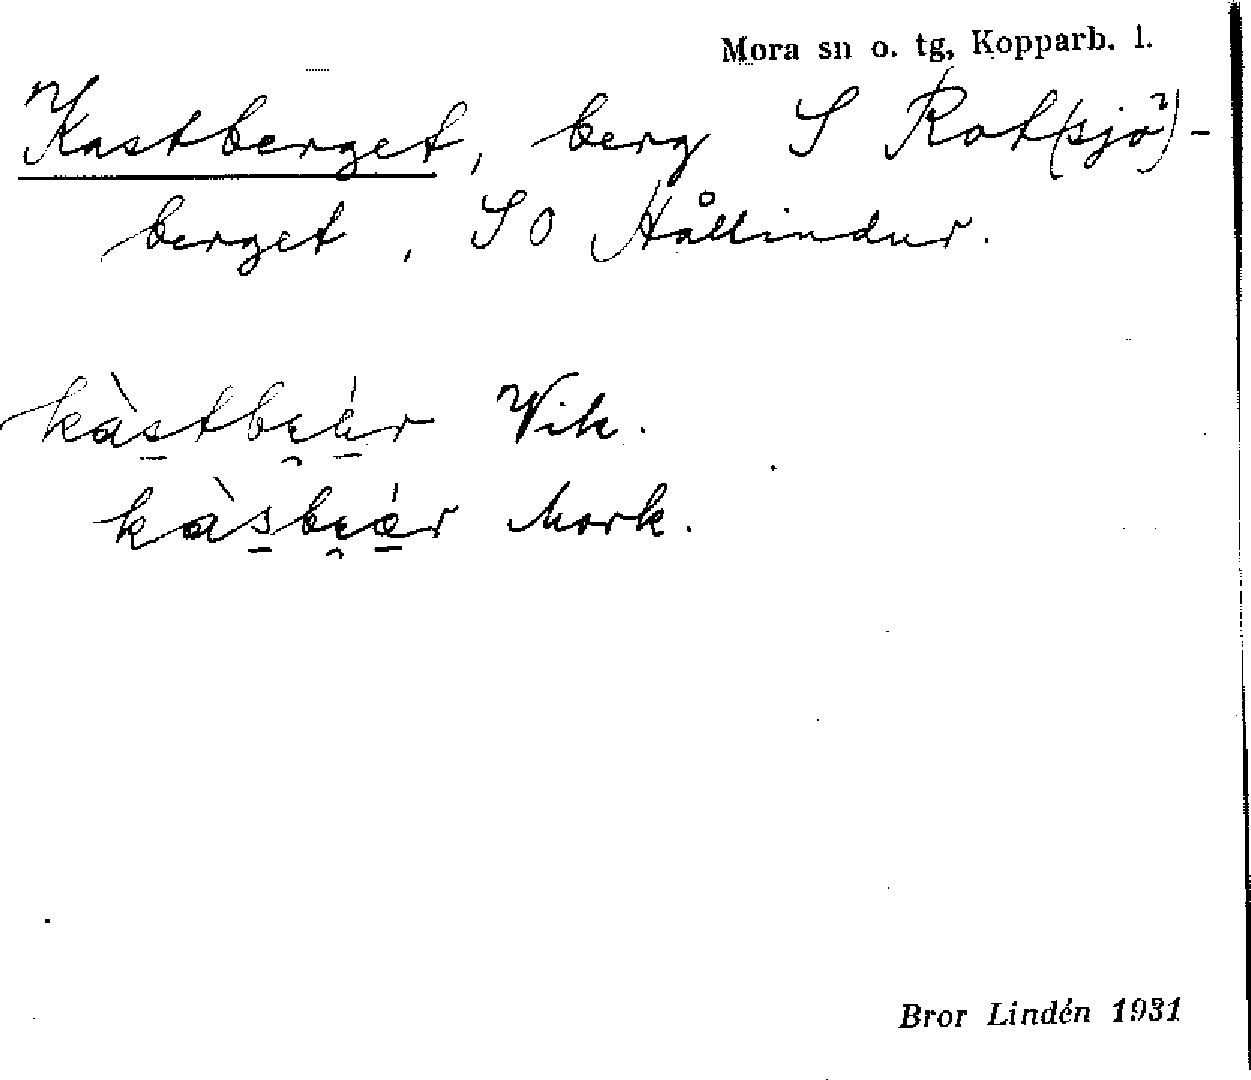 Mora sn o. tg, Kopparb. l.
Kastberget, berg S Rot(sjö?)-
berget, SO Hållindur.
kàstbe̯ár Vik.
kàsbe̯ár Mork.
Bror Lindén 1931